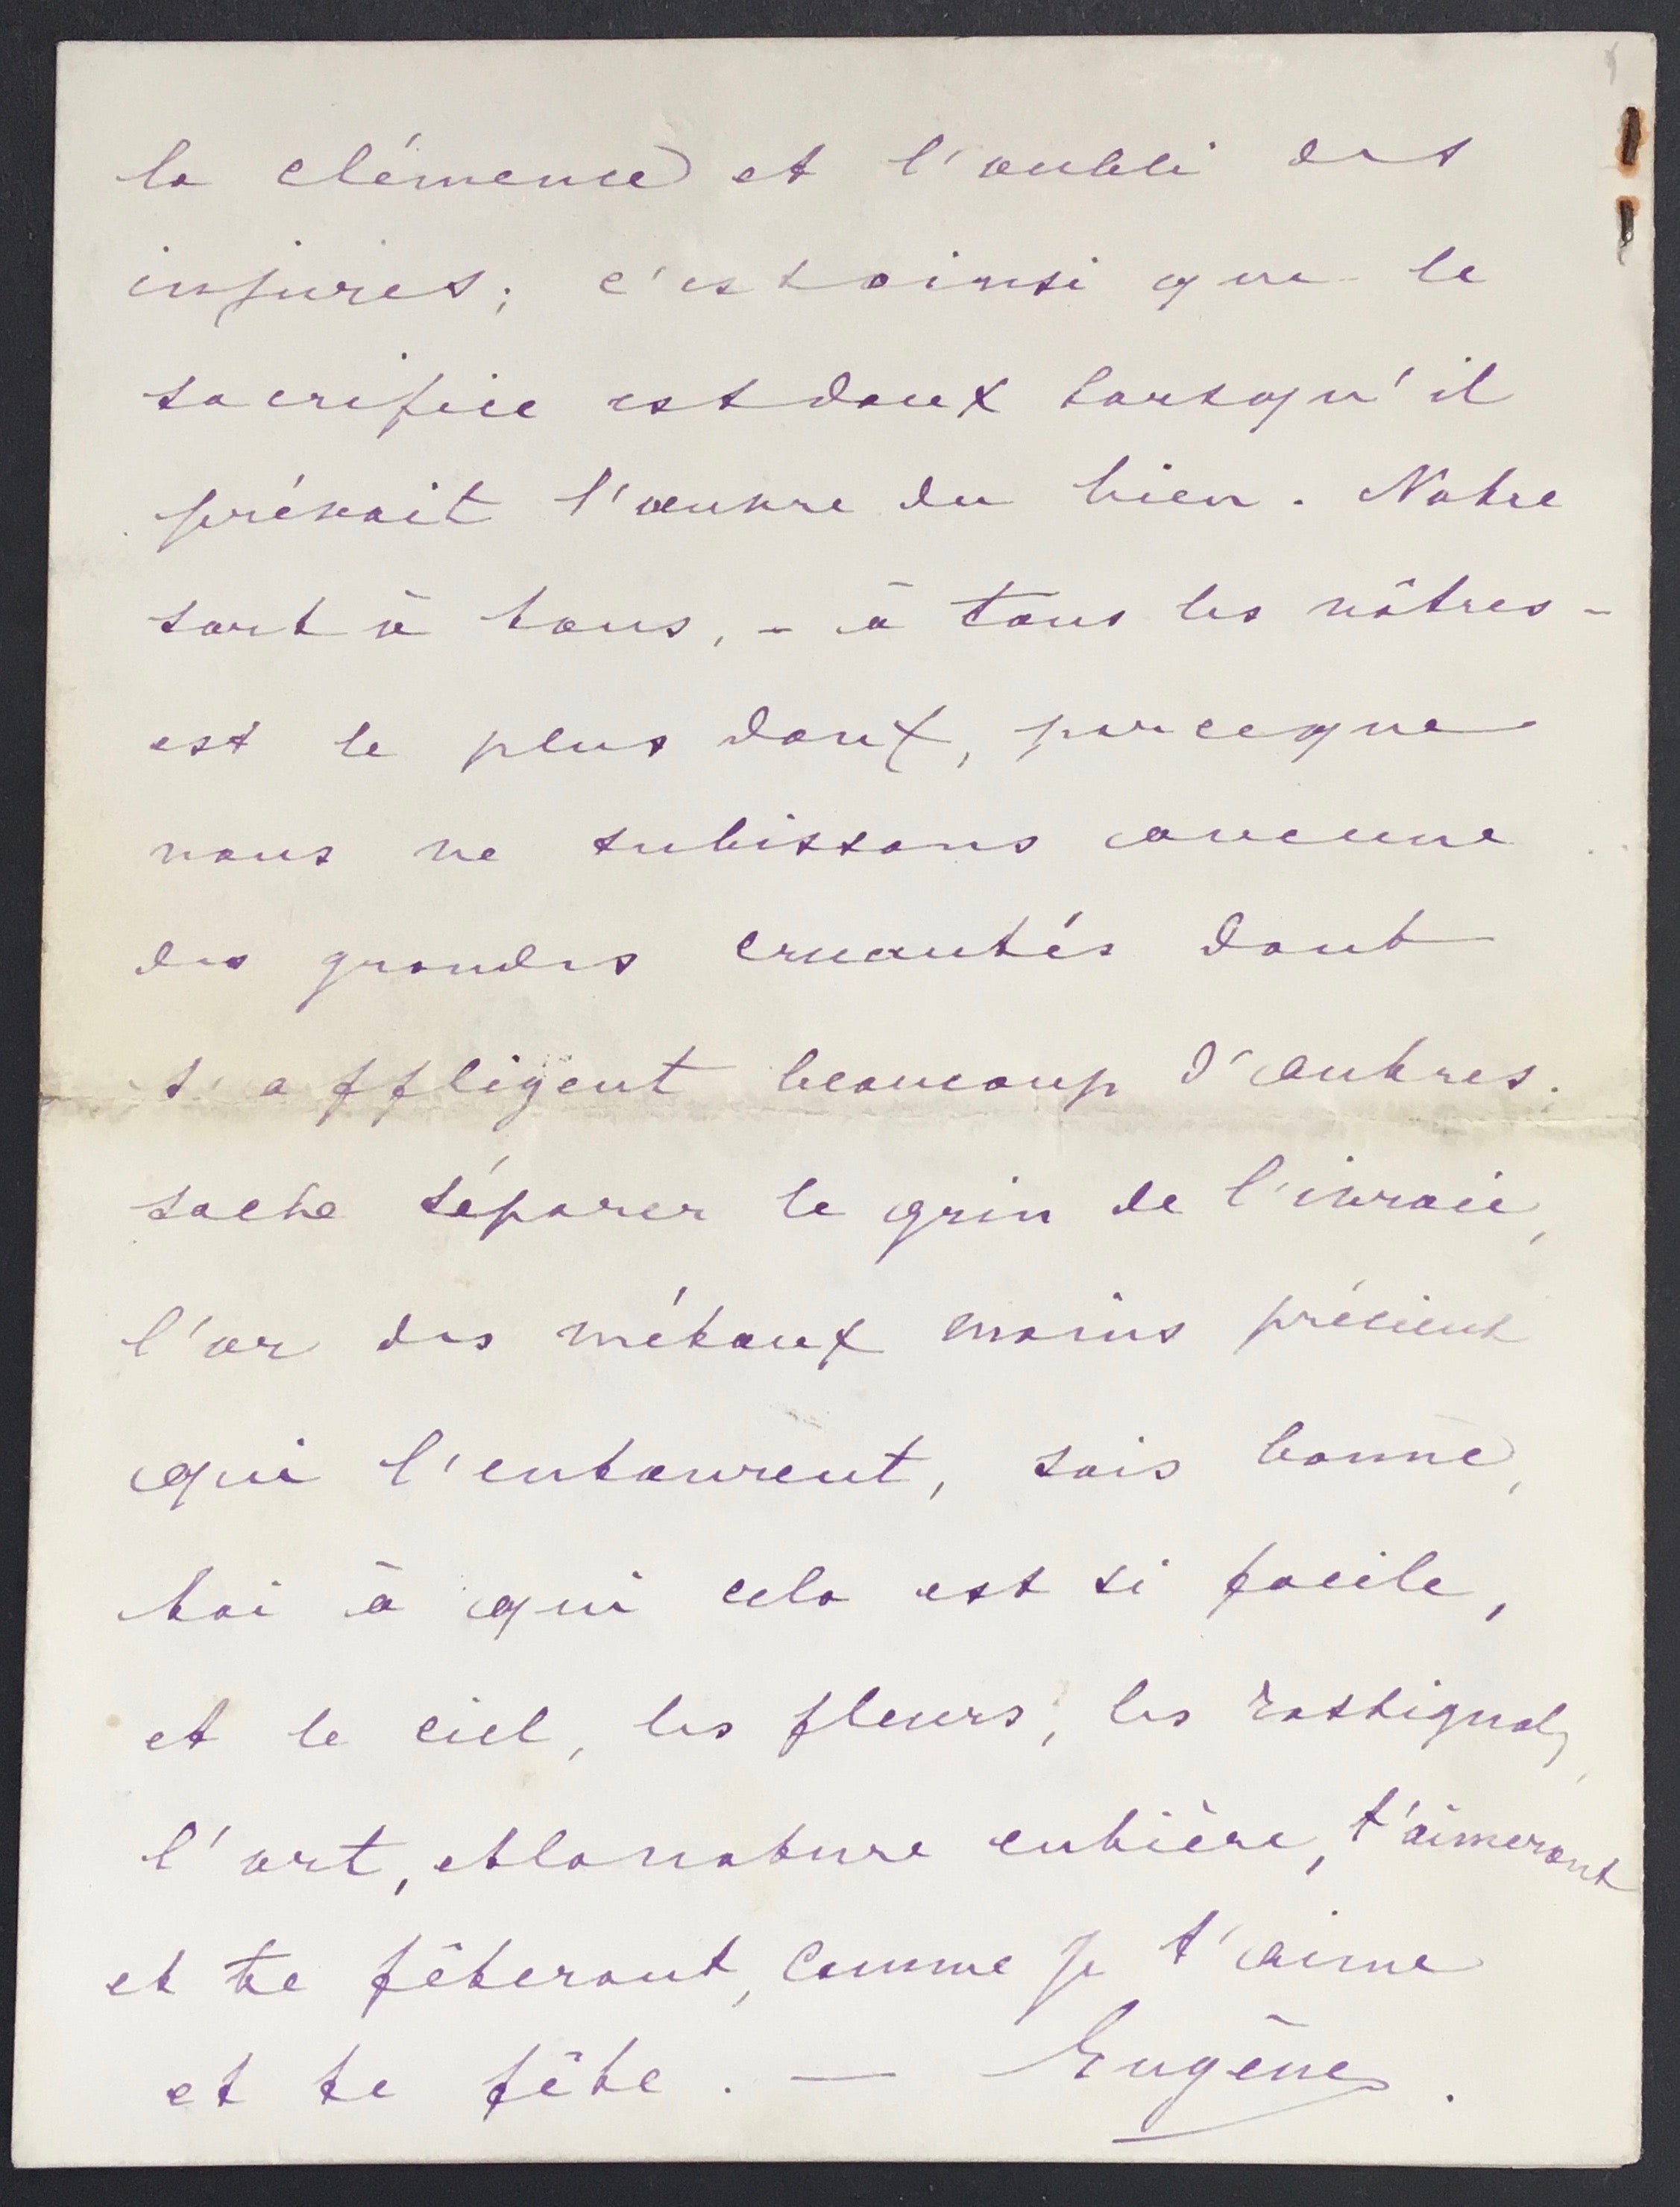 la clémence et l'oubli des
injures; c'est ainsi que le
sacrifice est doux lorsqu'il
prévoit l'œuvre du bien. Notre
sort à tous, - à tous les nôtres -
est le plus doux, parceque
nous ne subissons aucune
des grandes cruautés dont
s'affligent beaucoup d'autres.
sache séparer le grin de l'ivraie,
l'or des métaux moins précieux
qui l'entourent, sois bonne,
toi à qui cela est si facile,
et le ciel, les fleurs, les rossignols,
l'art, et la nature entière, t'aimeront
et te fêteront, comme je t'aime
et te fête. — Eugène.